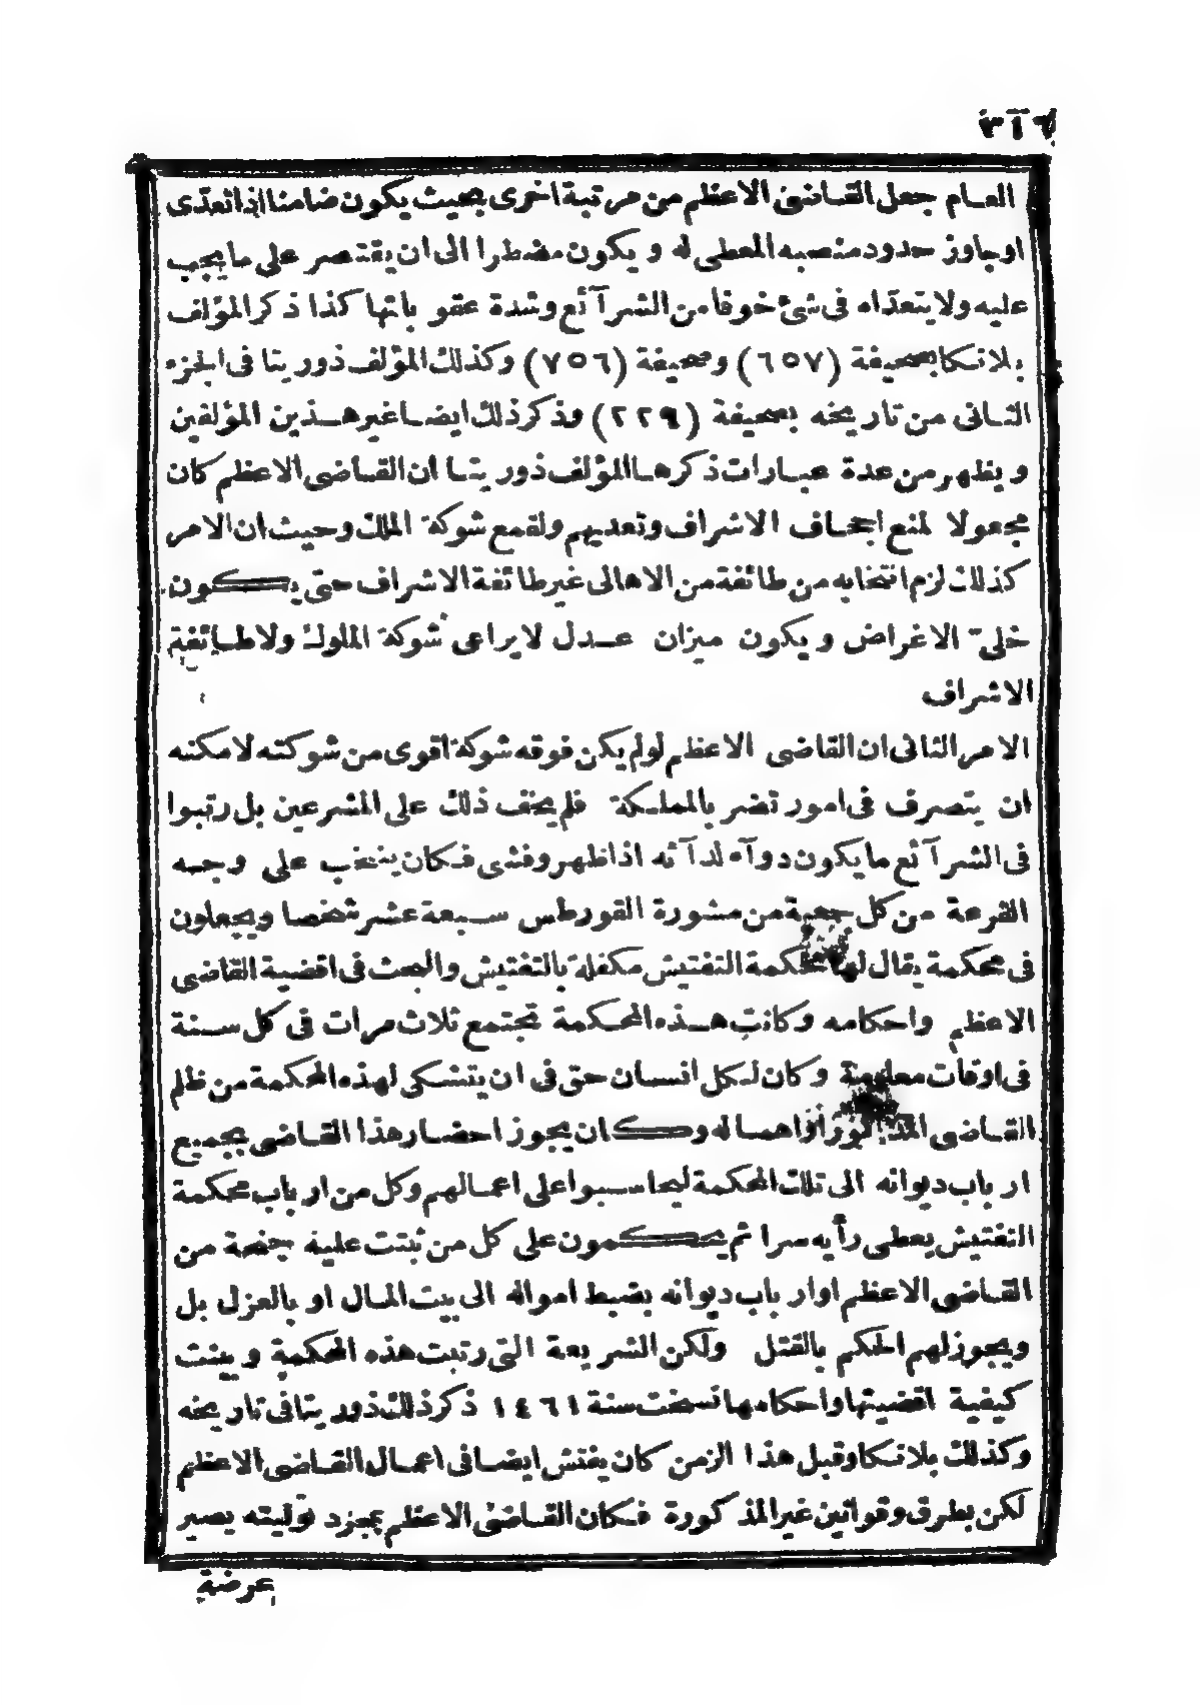 ٣١٦
العام جعل القاضى الاعظم من مرتبة اخرى بحيث يكون ضامنا اذا تعدى
اوجاوز حدود منصبه المعطى له و يكون مضطرا الى ان يقتصر على ما يجب
عليه ولا يتعداه فى شئ خوفا من الشرآئع وشدة عقو باتها كذا ذكر المؤلف
بلانكا بصحيفة (٦٥٧) وصحيفة (٧٥٦) وكذلك المؤلف ذور يتا فى الجزء
الثانى من تاريخه بصحيفة (٢٢٩) وذكر ذلك ايضا غير هذين المؤلفين
و يظهر من عدة عبارات ذكرها المؤلف ذور يتا ان القاضى الاعظم كان
مجعولا لمنع اجحاف الاشراف وتعديهم ولقمع شوكة الملك وحيث ان الامر
كذلك لزم انتخابه من طائفة من الاهالى غير طائفة الاشراف حتى يكون
خلىّ الاغراض و يكون ميزان عدل لا يراعى شوكة الملوك ولا طائفة
الاشراف
الامر الثانى ان القاضى الاعظم لو لم يكن فوقه شوكة اقوى من شوكته لامكنه
ان يتصرف فى امور تضر بالمملكة فلم يخف ذلك على المشرعين بل رتبوا
فى الشرآئع ما يكون دوآء لدآئه اذا ظهر وفشى فكان ينتخب على وجه
القرعة من كل جمعية من مشورة القورطس سبعة عشر شخصا ويجعلون
فى محكمة يقال لها محكمة التفتيش مكفلة بالتفتيش والبحث فى اقضية القاضى
الاعظم واحكامه وكانت هذه المحكمة تجتمع ثلاث مرات فى كل سنة
فى اوقات معلومة وكان لكل انسان حق فى ان يتشكى لهذه المحكمة من ظلم
القاضى المذكور او اهماله وكان يجوز احضار هذا القاضى بجميع
ار باب ديوانه الى تلك المحكمة ليحاسبوا على اعمالهم وكل من ار باب محكمة
التفتيش يعطى رأيه سرا ثم يحكمون على كل من ثبتت عليه جنحة من
القاضى الاعظم او ار باب ديوانه بضبط امواله الى بيت المال او بالعزل بل
ويجوز لهم الحكم بالقتل ولكن الشر يعة التى رتبت هذه المحكمة و بينت
كيفية اقضيتها واحكامها نسخت سنة ١٤٦١ ذكر ذلك ذور يتا فى تار يخه
وكذلك بلانكا وقبل هذا الزمن كان يفتش ايضا فى اعمال القاضى الاعظم
لكن بطرق وقوانين غير المذكورة فكان القاضى الاعظم بمجرد توليته يصير
عرضة